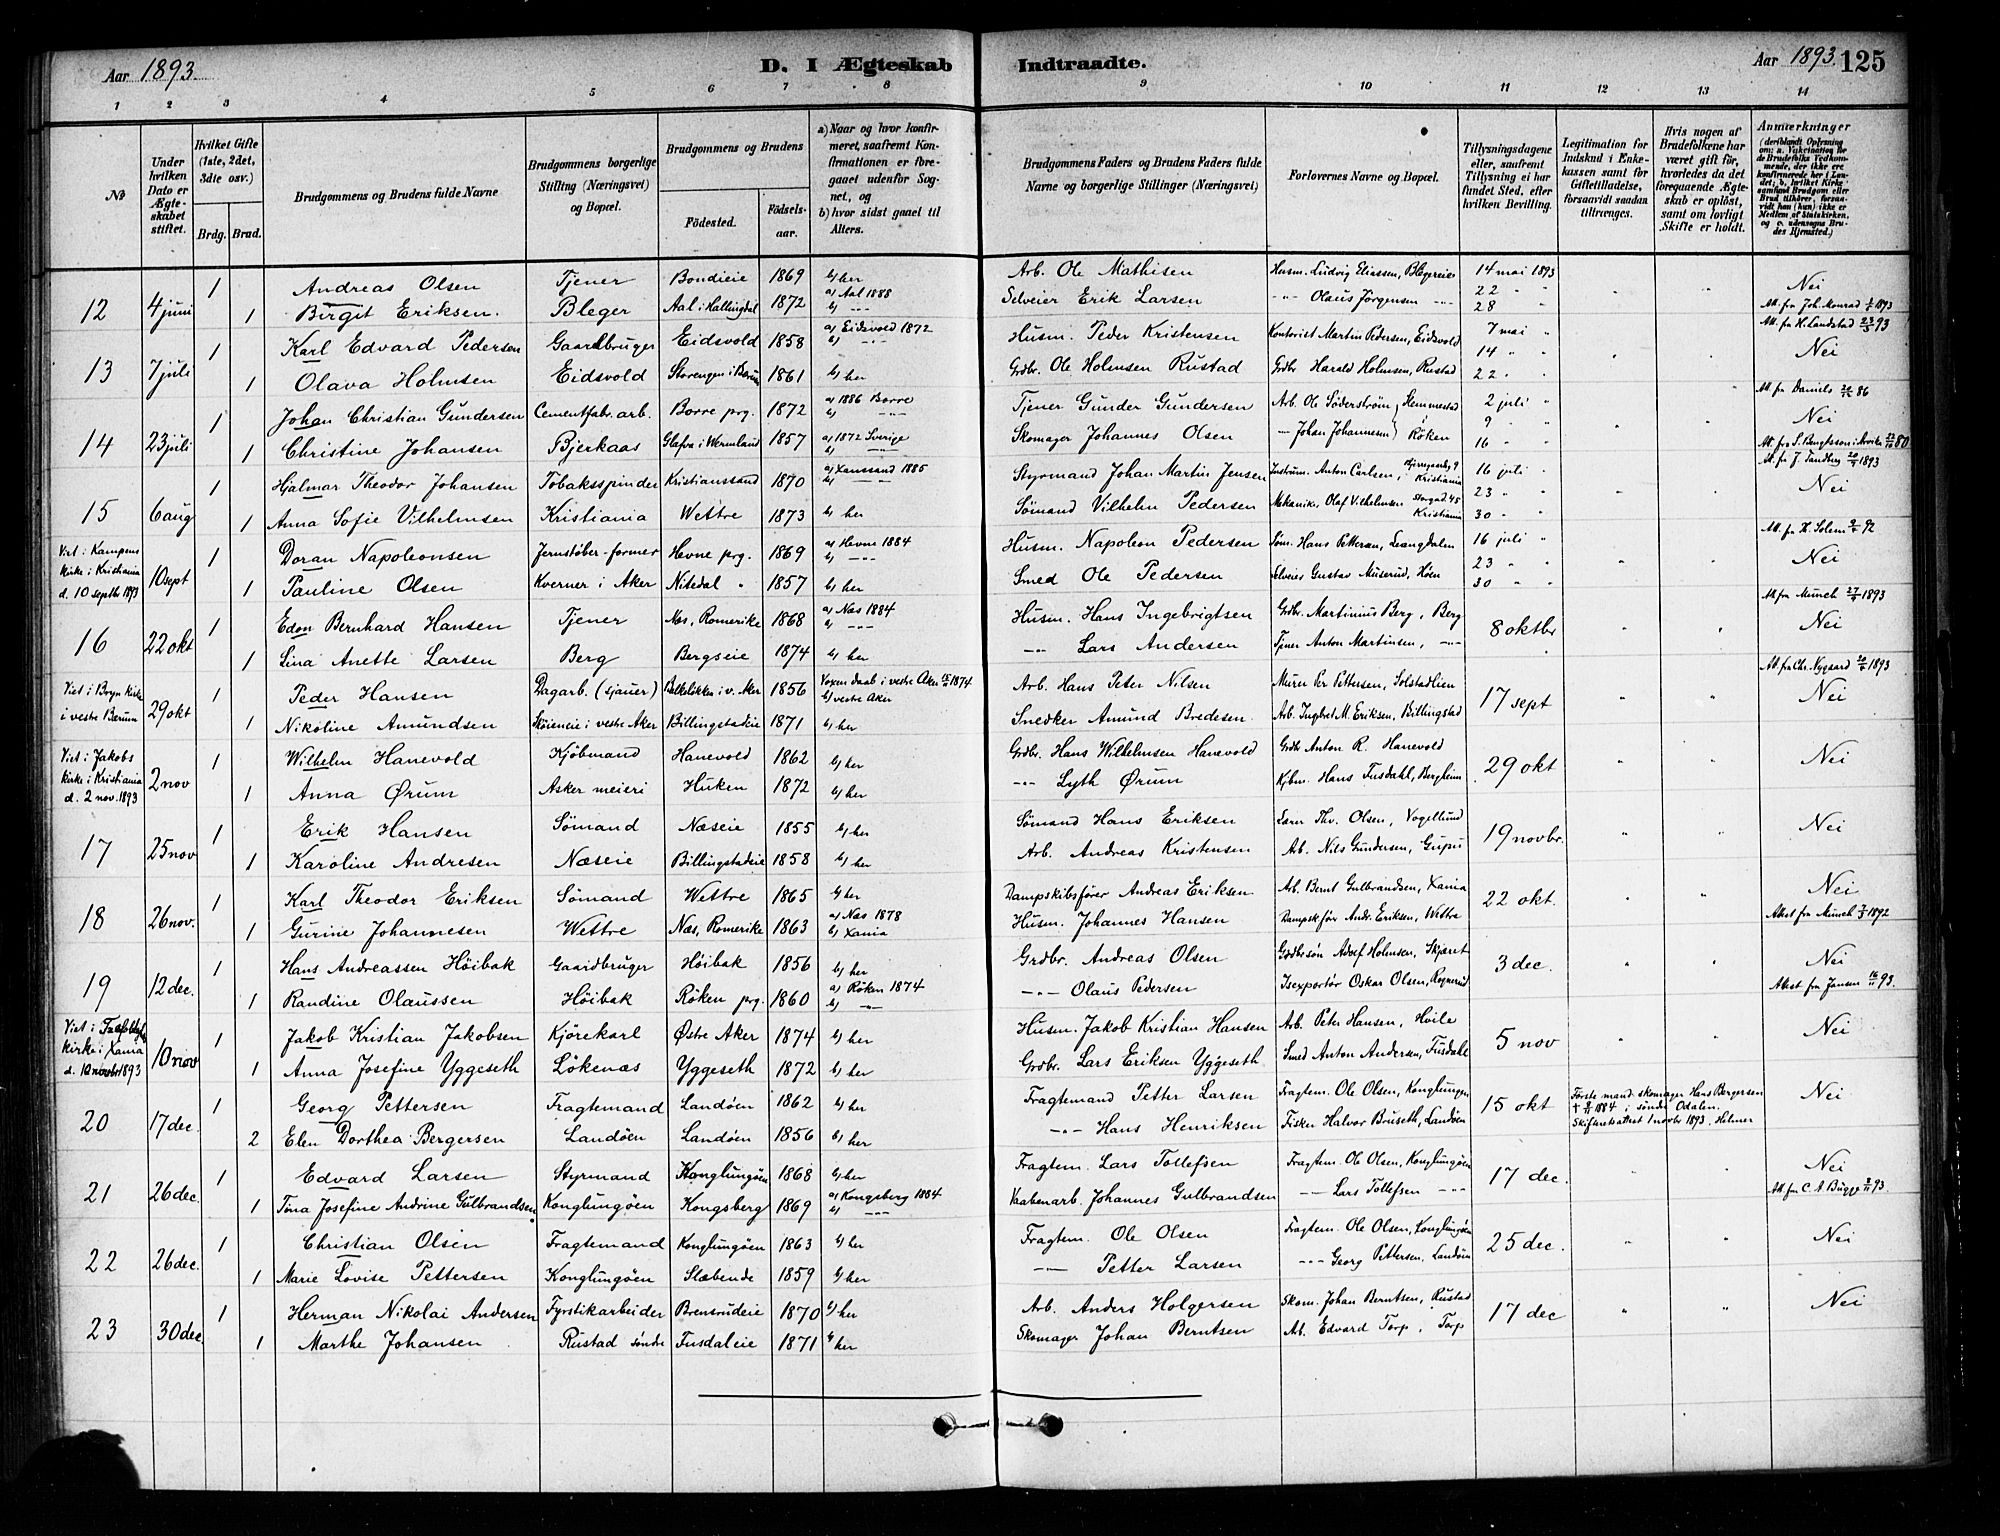 Aar 1893.
D. I Ægteskab Indtraadte.
Aar 1893. 125
1 2 3 4 5 6 7 8 9 10 11 12 13 14
No
Under hvilken Dato er Ægteskabet stiftet.
Hvilket Gifte (1ste, 2det, 3die osv.)
Brdg. Brud.
Brudgommens og Brudens fulde Navne
Brudgommens borgerlige Stilling (Næringsvei) og Bopæl.
Brudgommens og Brudens
Fødested. Fødselsaar.
a) Naar og hvor konfirmeret, saafremt Konfirmationen er foregaaet udenfor Sognet, og
b) hvor sidst gaaet til Alters.
Brudgommens Faders og Brudens Faders fulde Navne og borgerlige Stillinger (Næringsvei)
Forlovernes Navne og Bopæl.
Tillysningsdagene eller, saafremt Tillysning ei har fundet Sted, efter hvilken Bevilling.
Legitimation for Indskud i Enkekassen samt for Giftetilladelse, forsaavidt saadan tiltrænges.
Hvis nogen af Brudefolkene har været gift før, hvorledes da det foregaaende Ægteskab er opløst, samt om lovligt Skifte er holdt.
Anmærkninger (deriblandt Oplysning om: a. Vaccination for de Brudefolks Vedkommende, der ikke ere konfirmerede her i Landet; b. hvilket Kirkesamfund Brudgom eller Brud tilhører, forsaavidt han (hun) ikke er Medlem af Statskirken, og c. udensogns Brudes Hjemsted.)
12 4 juni 1 Andreas Olsen Tjener Bondieie 1869 b) her Arb. Ole Mathisen Husm. Ludvig Eliassen, Blegereie 14 mai 1893 Nei
1 Birgit Eriksen. Bleger Aal i Hallingdal 1872 a) Aal 1888 b) -"- Selveier Erik Larsen -"- Olaus Jørgensen -"- 22 " " 28 " " Att. fra Joh. Monrad 1893
13 7 juli 1 Karl Edvard Pedersen Gaardbruger Eidsvold 1858 a) Eidsvold 1872 b) -"- Husm. Peder Kristensen Kontorist Martin Pedersen, Eidsvold 7 mai " Att. fra H. Landstad 93
1 Olava Holmsen Eidsvold Storengen i Bærum 1861 b) her Grdbr. Ole Holmsen Rustad Grdbr Harald Holmsen, Rustad 14 " " 22 " " Nei
14 23 juli 1 Johan Christian Gundersen Cementfab. arb. Borre prg. 1872 a) 1886 Borre b) -"- Tjener Gunder Gundersen Arb. Ole Söderström, Slemmestad 2 juli " Att. fr. Daniels 86
1 Christine Johansen Bjerkaas Glafva i Wermland 1857 a) 1872 Sverige b) -"- Skomager Johannes Olsen -"- Johan Johannesen, Røken 9 " " 16 " " Nei Att. fra S. Bengtsson i Arvika 80
15 6 aug 1 Hjalmar Theodor Johansen Tobaksspinder Kristianssand 1870 a) Xanssand 1885 b) -"- Styrmand Johan Martin Jensen Instrum. Anton Carlsen, Kristiania 16 juli " Att. fr. J. Tandberg 1893
1 Anna Sofie Vilhelmsen Kristiania Wettre 1873 b) her Sømand Vilhelm Pedersen Mekanik. Olaf Vilhelmsen Storgad. 45 Kristiania 23 " " 30 " " Nei
Viet i Kampens kirke i Kristiania d. 10 septbr 1893 10 sept 1 Doran Napoleonsen Jernstøber-former Hevne prg. 1869 a) Hevne 1884 b) -"- Husm. Napoleon Pedersen Søm. Hans Pettersen, Leangdalen 16 juli " Att. fra H. Solem 92
1 Pauline Olsen Kverner i Aker Nitedal " 1857 b) her Smed Ole Pedersen Selveier Gustav Muserud, Høen 23 " " 30 " " Nei
16 22 okt 1 Edon Bernhard Hansen Tjener Nes, Romerike 1868 a) Nes 1884 b) -"- Husm. Hans Ingebrigtsen Grdbr. Martinius Berg, Berg 8 oktbr Att fra Münch 1893
1 Lina Anette Larsen Berg Bergseie 1874 b) her -"- Lars Andersen Tjener Anton Martinsen, -"- Nei
Viet i Bryn kirke i vestre Bærum 29 okt 1 Peder Hansen Dagarb. (sjauer) Bekkelikken i v. Aker 1856 Voxen daab i vestre Aker 1874 b) vestre Aker Arb. Hans Peter Nilsen Murer Per Pettersen, Solstadlien 17 sept Att fra Chr. Nygaard 1893
1 Nikoline Amundsen Skøieneie i vestre Aker Billingstadeie 1871 b) her Snedker Amund Bredesen Arb. Ingbret M. Eriksen, Billingstad Nei
Viet i Jakobs kirke i Kristiania d. 2 nov. 1893 2 nov 1 Wilhelm Hanevold Kjøbmand Hanevold 1862 b) her Grdbr. Hans Wilhelmsen Hanevold Grdbr Anton R. Hanevold 29 okt Nei
1 Anna Ørum Asker meieri Huken 1872 b) her -"- Lyth Ørum Kjbm. Hans Fusdahl, Bergheim
17 25 nov 1 Erik Hansen Sømand Næseie 1855 b) her Sømand Hans Eriksen Lærer Thv. Olsen, Vogellund 19 novbr. Nei
1 Karoline Andresen Næseie Billingstadeie 1858 b) her Arb. Andreas Kristensen Arb. Nils Gundersen, Gupu
18 26 nov. 1 Karl Theodor Eriksen Sømand Wettre 1865 b) her Dampskibsfører Andreas Eriksen Arb. Bernt Gulbrandsen, Xania 22 okt. Nei
1 Gurine Johannesen Wettre Næs, Romerike 1863 a) Næs 1878 b) Xania Husm. Johannes Hansen Dampskfør Andr. Eriksen, Wettre Attest fra Münch 1892
19 12 dec. 1 Hans Andreassen Høibak Gaardbruger Høibak 1856 b) her Grdbr. Andreas Olsen Grdbrsøn Adolf Holmsen, Skjæret 3 dec. Nei
1 Randine Olaussen Høibak Røken prg. 1860 a) Røken 1874 b) -"- -"- Olaus Pedersen Isexportør Oskar Olsen, Rognerud Attest fra Jansen 93.
Viet i kirke i Xania d. 10 novbr 1893 10 nov 1 Jakob Kristian Jakobsen Kjørekarl Østre Aker 1874 b) her Husm. Jakob Kristian Hansen Arb. Peter Hansen, Hvile 5 nov Nei
1 Anna Josefine Yggeseth Løkenæs Yggeseth 1872 b) her Grdbr. Lars Eriksen Yggeseth Smed Anton Andersen, Fusdahl
20 17 dec. 1 Georg Pettersen Fragtemand Landøen 1862 b) her Fragtemand Petter Larsen Fragtem. Ole Olsen, Konglungen 15 okt Første mand skomager Hans Bergersen † 1884 i søndre Odalen. Skifteretsattest 1 novbr 1893. Helmer Nei
2 Elen Dorthea Bergersen Landøen Landøen 1856 b) her -"- Hans Henriksen Fisker Halvor Bruseth, Landøen
21 26 dec. 1 Edvard Larsen Styrmand Konglungøen 1868 b) her Fragtem. Lars Tollefsen Fragtem. Ole Olsen, Konglungøen 17 dec. Nei
1 Tina Josefine Andrine Gulbrandsen Konglungøen Kongsberg 1869 a) Kongsberg 1884 b) -"- Vaabenarb. Johannes Gulbrandsen -"- Lars Tollefsen -"- Att. fr. C. A. Bugge 93.
22 26 dec. 1 Christian Olsen Fragtemand Konglungøen 1863 b) her Fragtem. Ole Olsen Fragtem. Ole Olsen, Konglungøen 25 dec. Nei
1 Marie Lovise Pettersen Konglungøen Slæbende 1859 b) her -"- Petter Larsen -"- Georg Pettersen, Landøen
23 30 dec. 1 Herman Nikolai Andersen Fyrstikarbeider Brensrudeie 1870 b) her Arb. Anders Holgersen Skom. Johan Berntsen, Rustad 17 dec Nei
1 Marthe Johansen Rustad søndre Fusdaleie 1871 b) her Skomager Johan Berntsen Arb. Edvard Torp, Torp